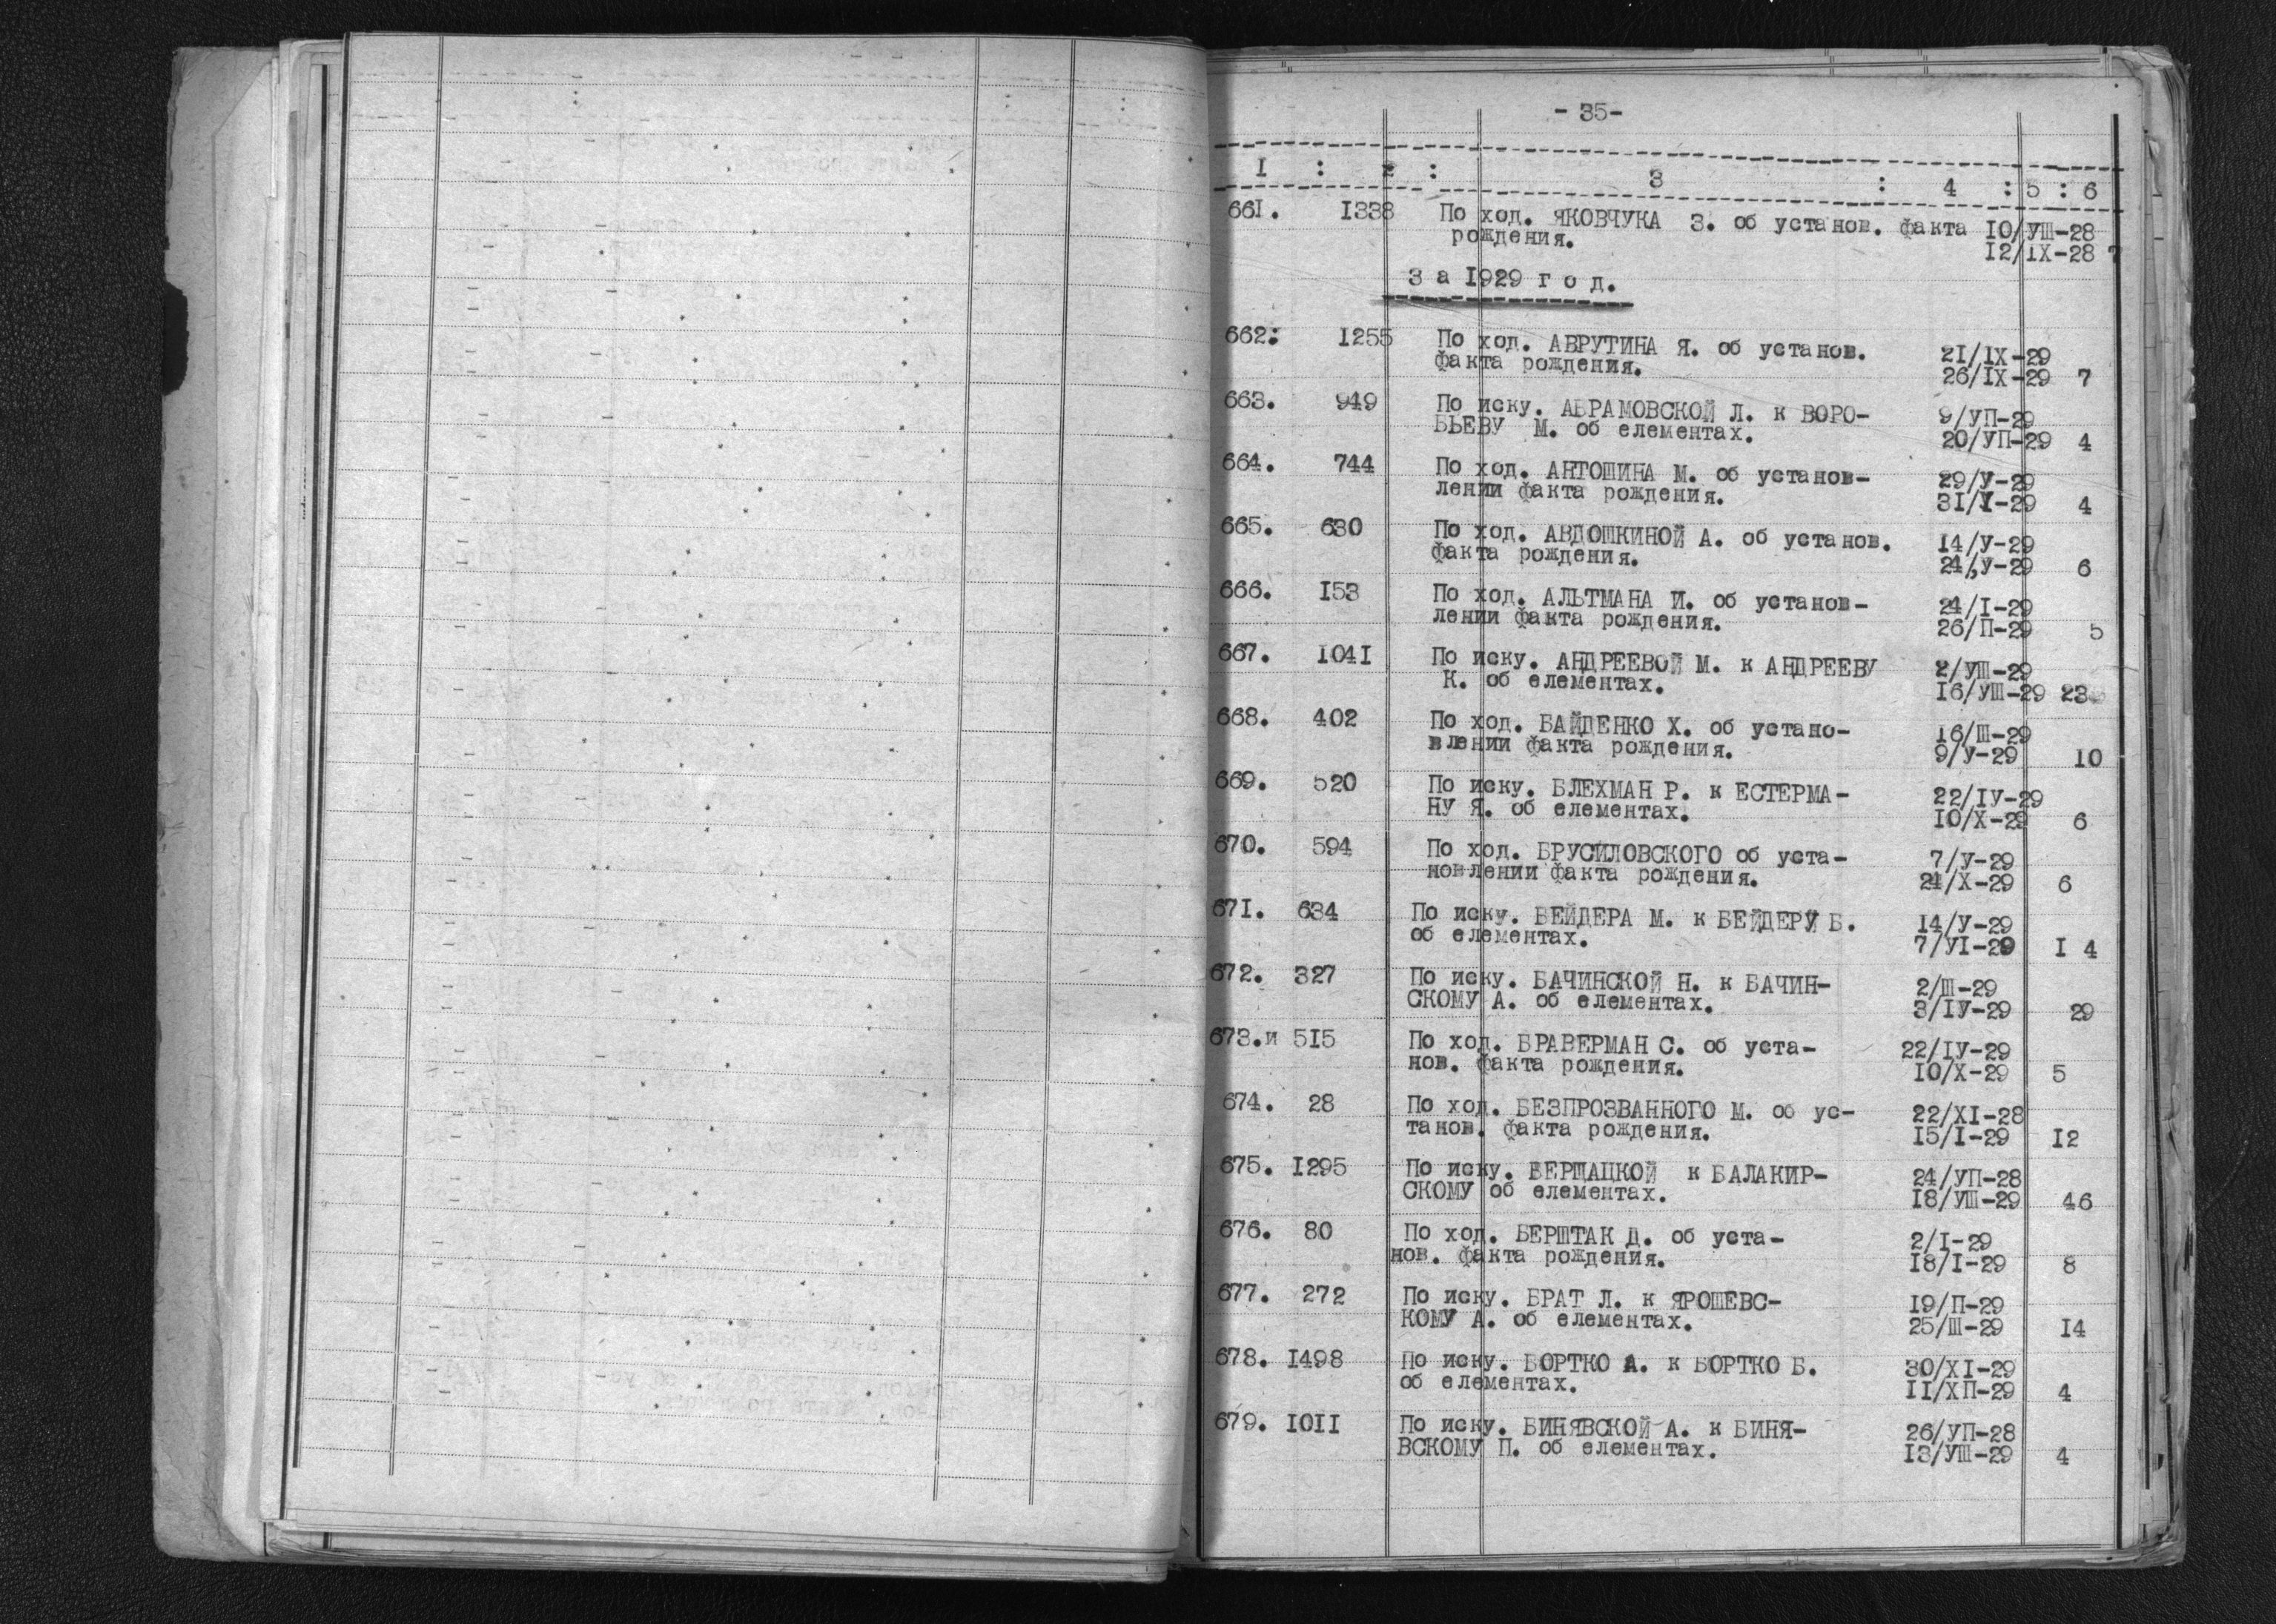 - 35-
I : 2 : 3 : 4 : 5 : 6
661. I338 По ход. ЯКОВЧУКА З. об установ. факта IO/УШ-28
рождения. I2/IX-28 7
З а I929 г о д.
662: I255 По ход. АВРУТИНА Я. об установ. 2I/IX-29
факта рождения. 26/IX-29 7
663. 949 По иску. АБРАМОВСКОЙ Л. к ВОРО- 9/УП-29
БЬЕВУ М. об елементах. 20/УП-29 4
664. 744 По ход. АНТОШИНА М. об установ- 29/У-29
лении факта рождения. 3I/У-29 4
665. 630 По ход. АВДОШКИНОЙ А. об установ. I4/У-29
факта рождения. 24/У-29 6
666. I53 По ход. АЛЬТМАНА И. об установ- 24/I-29
лении факта рождения. 26/П-29 5
667. I04I По иску. АНДРЕЕВОЙ М. к АНДРЕЕВУ 2/УШ-29
К. об елементах. I6/УШ-29 23
668. 402 По ход. БАЙДЕНКО Х. об устано- I6/Ш-29
влении факта рождения. 9/У-29 I0
669. 520 По иску. БЛЕХМАН Р. к ЕСТЕРМА- 22/IУ-29
НУ Я. об елементах. IO/X-29 6
670. 594 По ход. БРУСИЛОВСКОГО об уста- 7/У-29
новлении факта рождения. 24/X-29 6
67I. 634 По иску. БЕЙДЕРА М. к БЕЙДЕРУ Б. I4/У-29
об елементах. 7/УI-29 I 4
672. 327 По иску. БАЧИНСКОЙ Н. к БАЧИН- 2/Ш-29
СКОМУ А. об елементах. 3/IУ-29 29
673.и 5I5 По ход. БРАВЕРМАН С. об уста- 22/IУ-29
нов. факта рождения. IO/X-29 5
674. 28 По ход. БЕЗПРОЗВАННОГО М. об ус- 22/XI-28
танов. факта рождения. I5/I-29 I2
675. I295 По иску. БЕРШАЦКОЙ к БАЛАКИР- 24/УП-28
СКОМУ об елементах. I8/УШ-29 46
676. 80 По ход. БЕРШТАК Д. об уста- 2/I-29
нов. факта рождения. I8/I-29 8
677. 272 По иску. БРАТ Л. к ЯРОШЕВС- I9/П-29
КОМУ А. об елементах. 25/Ш-29 I4
678. I498 По иску. БОРТКО А. к БОРТКО Б. 30/XI-29
об елементах. II/ХП-29 4
679. I0II По иску. БИНЯВСКОЙ А. к БИНЯ- 26/УП-28
ВСКОМУ П. об елементах. I3/УШ-29 4